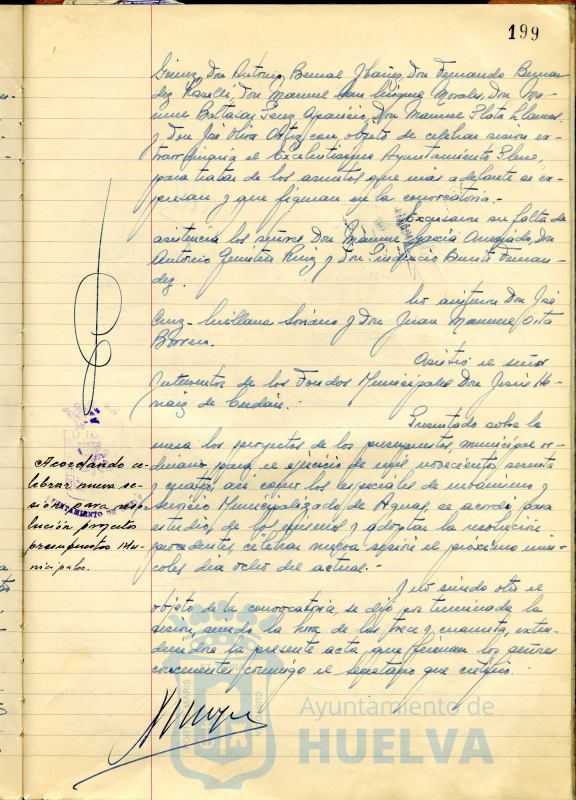 199
Gómez, Don Antonio Bernal Ibáñez, Don Fernando Bernan-
dez Roselló, Don Manuel San Miguel Morales, Don Ma-
nuel Baltasar Perez Aparicio, Don Manuel Plata Llamas,
y Don José Oliva con objeto de celebrar sesión ex-
traordinaria el Excelentisimo Ayuntamiento Pleno,
para tratar de los asuntos que más adelante se ex-
presan y que figuran en la convocatoria.-
Excusaron su falta de
asistencia los señores Don Manuel García Don
Antonio Ruiz y Don Benito Fernan-
dez.
No asistieron Don José
Cruz Orellana Soriano y Don Juan Manuel
Borrero.
Asistió el señor
Interventor de los Fondos Municipales Don Jesús
de
Presentado sobre la
mesa los proyectos de los presupuestos, municipal or-
dinario para el ejercicio de mil novecientos sesenta
y cuatro, así como los especiales de urbanismo y
Servicio Municipalizado de Aguas, se acordó para
estudio de los mismos y adoptar la resolución
procedente, celebrar nueva sesión el próximo miér-
coles dia ocho del actual.-
Acordando ce-
lebrar nueva se-
sión para reso-
lución proyectos
presupuestos Mu-
nicipales.
Y no siendo otro el
objeto de la convocatoria, se dijo por terminada la
sesión, siendo la hora de las trece y cuarenta, exten-
diendose la presente acta que firman los señores
concurrentes conmigo el secretario que certifico.
Ayuntamiento de
HUELVA